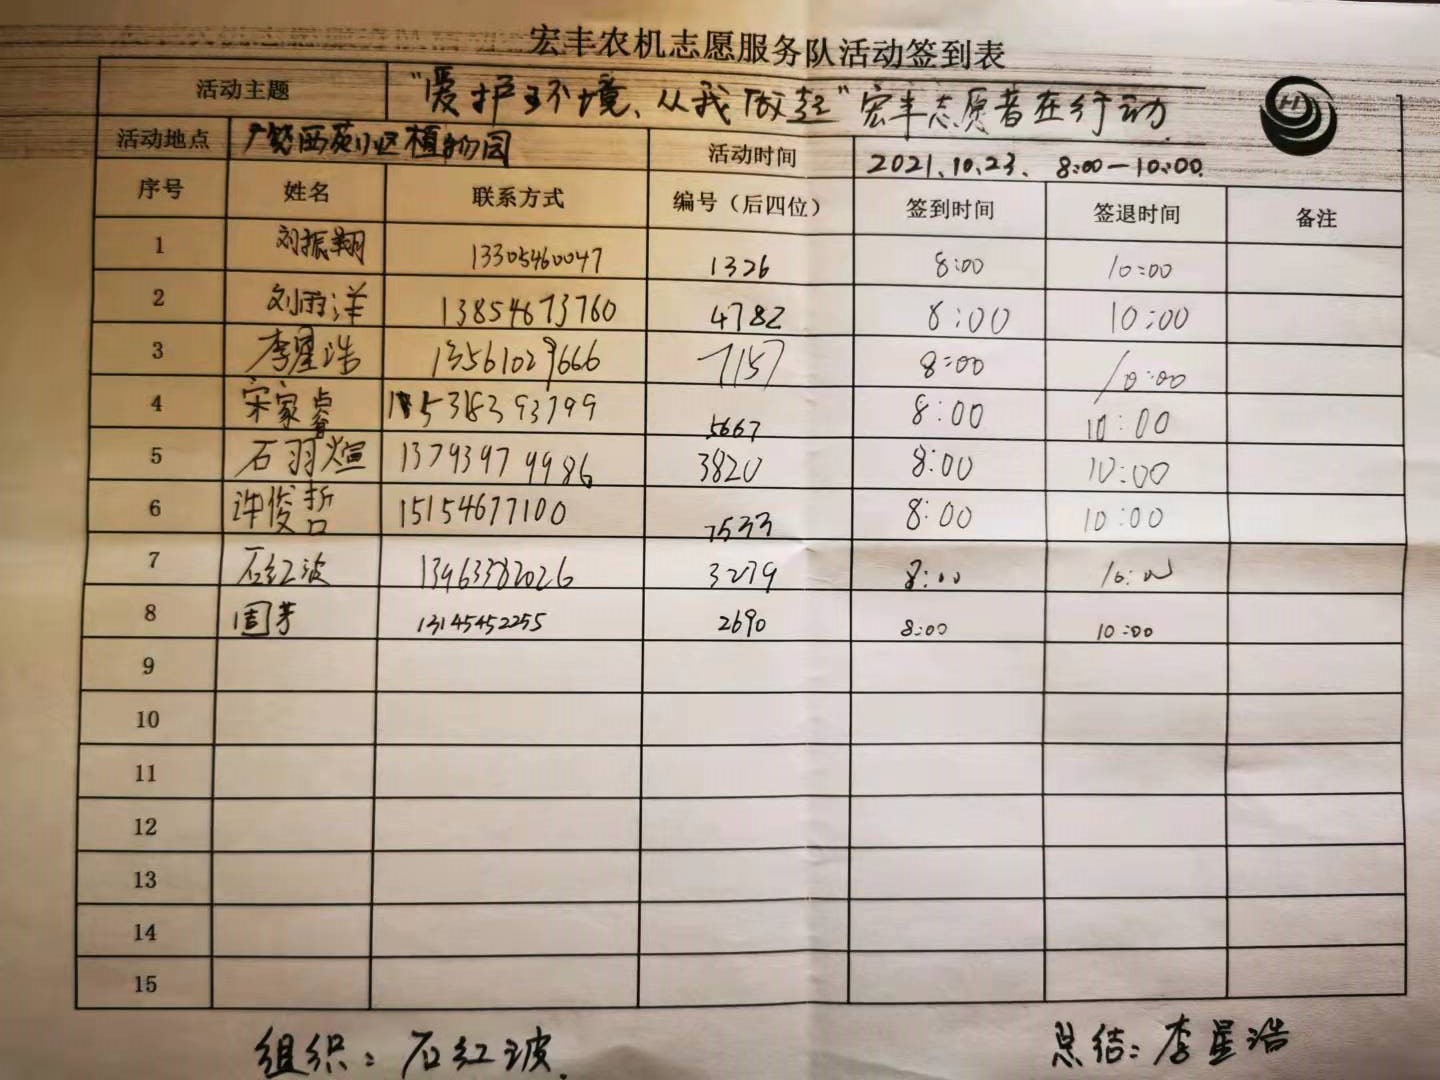 宏丰农机志愿服务队活动签到表
活动主题 "爱护环境、从我做起"宏丰志愿者在行动.
活动地点 广饶西苑小区植物园 活动时间 2021.10.23. 8:00-10:00.
序号 姓名 联系方式 编号（后四位） 签到时间 签退时间 备注
1 刘振翔 13305460047 1326 8:00 10:00
2 刘雨洋 13854673760 4782 8:00 10:00
3 李星浩 13561029666 7157 8:00 10:00
4 宋家睿 15318393799 5667 8:00 10:00
5 石羽煊 13793979986 3820 8:00 10:00
6 许俊哲 15154677100 7533 8:00 10:00
7 石红波 13963382026 3279 8:00 10:00
8 周芳 13145452255 2690 8:00 10:00
9
10
11
12
13
14
15
组织：石红波. 总结：李星浩